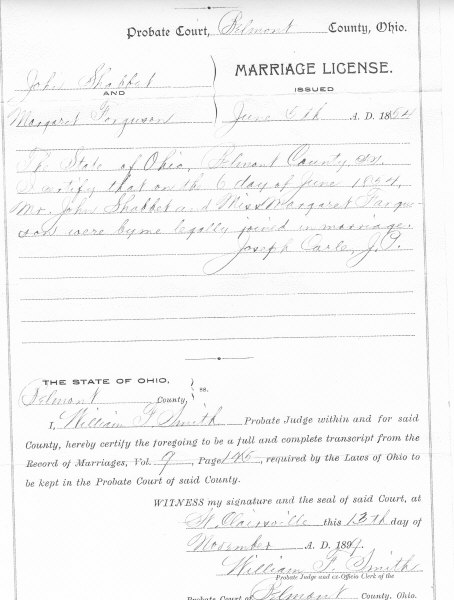 Probate Court, Belmont County, Ohio.
John Shabbet
AND
Margaret Ferguson
MARRIAGE LICENSE.
ISSUED
June 6th A. D. 1854
The State of Ohio, Belmont County, ss.
I certify that on the 6 day of June 1854,
Mr. John Shabbet and Miss Margaret Fergu-
sons were by me legally joined in marriage.
Joseph Carle, J. P.
THE STATE OF OHIO,
Belmont County, ss.
I, William F. Smith Probate Judge within and for said
County, hereby certify the foregoing to be a full and complete transcript from the
Record of Marriages, Vol. 9, Page 145, required by the Laws of Ohio to
be kept in the Probate Court of said County.
WITNESS my signature and the seal of said Court, at
St. Clairsville this 13th day of
November A. D. 1899.
William F. Smith
Probate Judge and ex-Officio Clerk of the
Probate Court of Belmont County, Ohio.